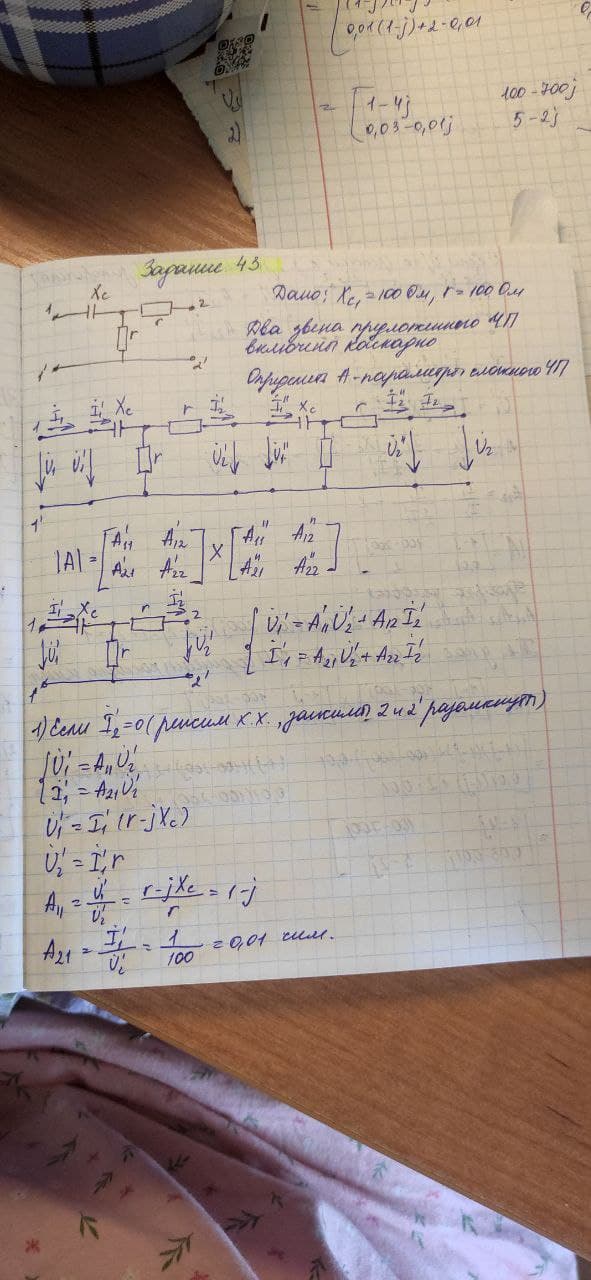 = [(1-j)(1-j)
0,01(1-j)+2·0,01
= [1-4j 100-700j
0,03-0,01j 5-2j
2)
Задание 43
1 Xc r 2
r
1' 2'
Дано: Xc₁ = 100 Ом, r = 100 Ом
Два звена предложенного ЧП
включены каскадно
Определить А-параметры сложного ЧП
1 İ₁ İ₁' Xc r İ₂' İ₁'' Xc r İ₂'' İ₂
U̇₁ U̇₁' r U̇₂' U̇₁'' U̇₂'' U̇₂
1'
|A| = [A₁₁' A₁₂' A₂₁' A₂₂'] X [A₁₁'' A₁₂'' A₂₁'' A₂₂'']
1 İ₁' Xc r İ₂' 2
U̇₁' r U̇₂'
1' 2'
{U̇₁' = A₁₁'U̇₂' + A₁₂İ₂'
İ₁' = A₂₁U̇₂' + A₂₂İ₂'
1) Если İ₂' = 0 (режим х.х., зажимы 2 и 2' разомкнуты)
{U̇₁' = A₁₁U̇₂'
İ₁' = A₂₁U̇₂'
U̇₁' = İ₁'(r-jXc)
U̇₂' = İ₁'r
A₁₁ = U̇₁'/U̇₂' = (r-jXc)/r = 1-j
A₂₁ = İ₁'/U̇₂' = 1/100 = 0,01 сим.